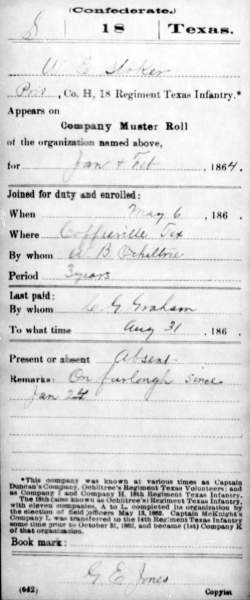 (Confederate.)
S 18 Texas.
W E Stoker
Priv, Co. H, 18 Regiment Texas Infantry.*
Appears on
Company Muster Roll
of the organization named above,
for Jan & Feb, 1864.
Joined for duty and enrolled:
When May 6, 186 .
Where Coffeeville Tex
By whom W. B. Ochiltree
Period 3 years
Last paid:
By whom G Graham
To what time Aug 31, 186 .
Present or absent Absent
Remarks: On furlough since
Jan 24
*This company was known at various times as Captain
Duncan's Company, Ochiltree's Regiment Texas Volunteers; and
as Company I and Company H, 18th Regiment Texas Infantry.
The 18th (also known as Ochiltree's) Regiment Texas Infantry,
with eleven companies, A to L, completed its organization by
the election of field officers May 13, 1862. Captain McKnight's
Company L was transferred to the 14th Regiment Texas Infantry
some time prior to October 31, 1862, and became (1st) Company K
of that organization.
Book mark:
G. E. Jones
(642) Copyist